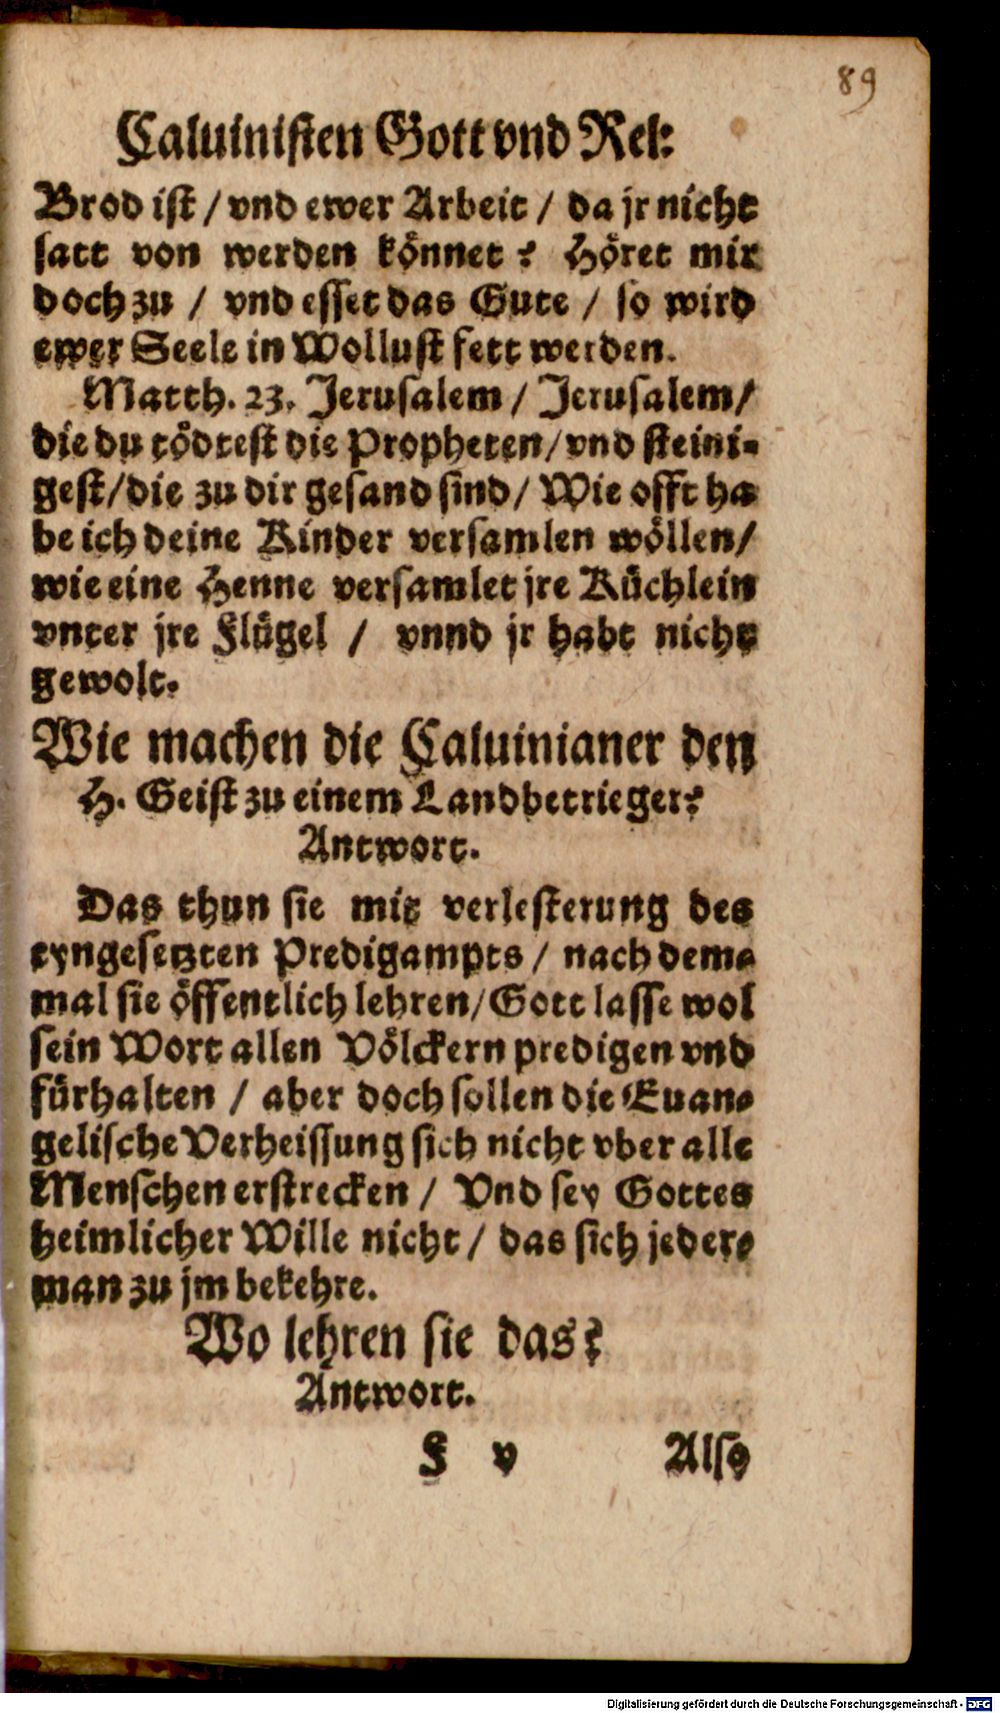 89
Caluinisten Gott vnd Rel:
Brod ist / vnd ewer Arbeit / da jr nicht
satt von werden könnet? Höret mir
doch zu / vnd esset das Gute / so wird
ewer Seele in Wollust fett werden.
Matth. 23. Jerusalem / Jerusalem /
die du tödtest die Propheten / vnd steini-
gest / die zu dir gesand sind / Wie offt ha-
be ich deine Kinder versamlen wöllen /
wie eine Henne versamlet jre Küchlein
vnter jre Flügel / vnnd jr habt nicht
gewolt.
Wie machen die Caluinianer den
H. Geist zu einem Landbetrieger?
Antwort.
Das thun sie mit verlesterung des
eyngesetzten Predigampts / nach dem-
mal sie öffentlich lehren / Gott lasse wol
sein Wort allen Völckern predigen vnd
fürhalten / aber doch sollen die Euan-
gelische Verheissung sich nicht vber alle
Menschen erstrecken / Vnd sey Gottes
heimlicher Wille nicht / das sich jeder-
man zu jm bekehre.
Wo lehren sie das?
Antwort.
F v Also
Digitalisierung gefördert durch die Deutsche Forschungsgemeinschaft - DFG